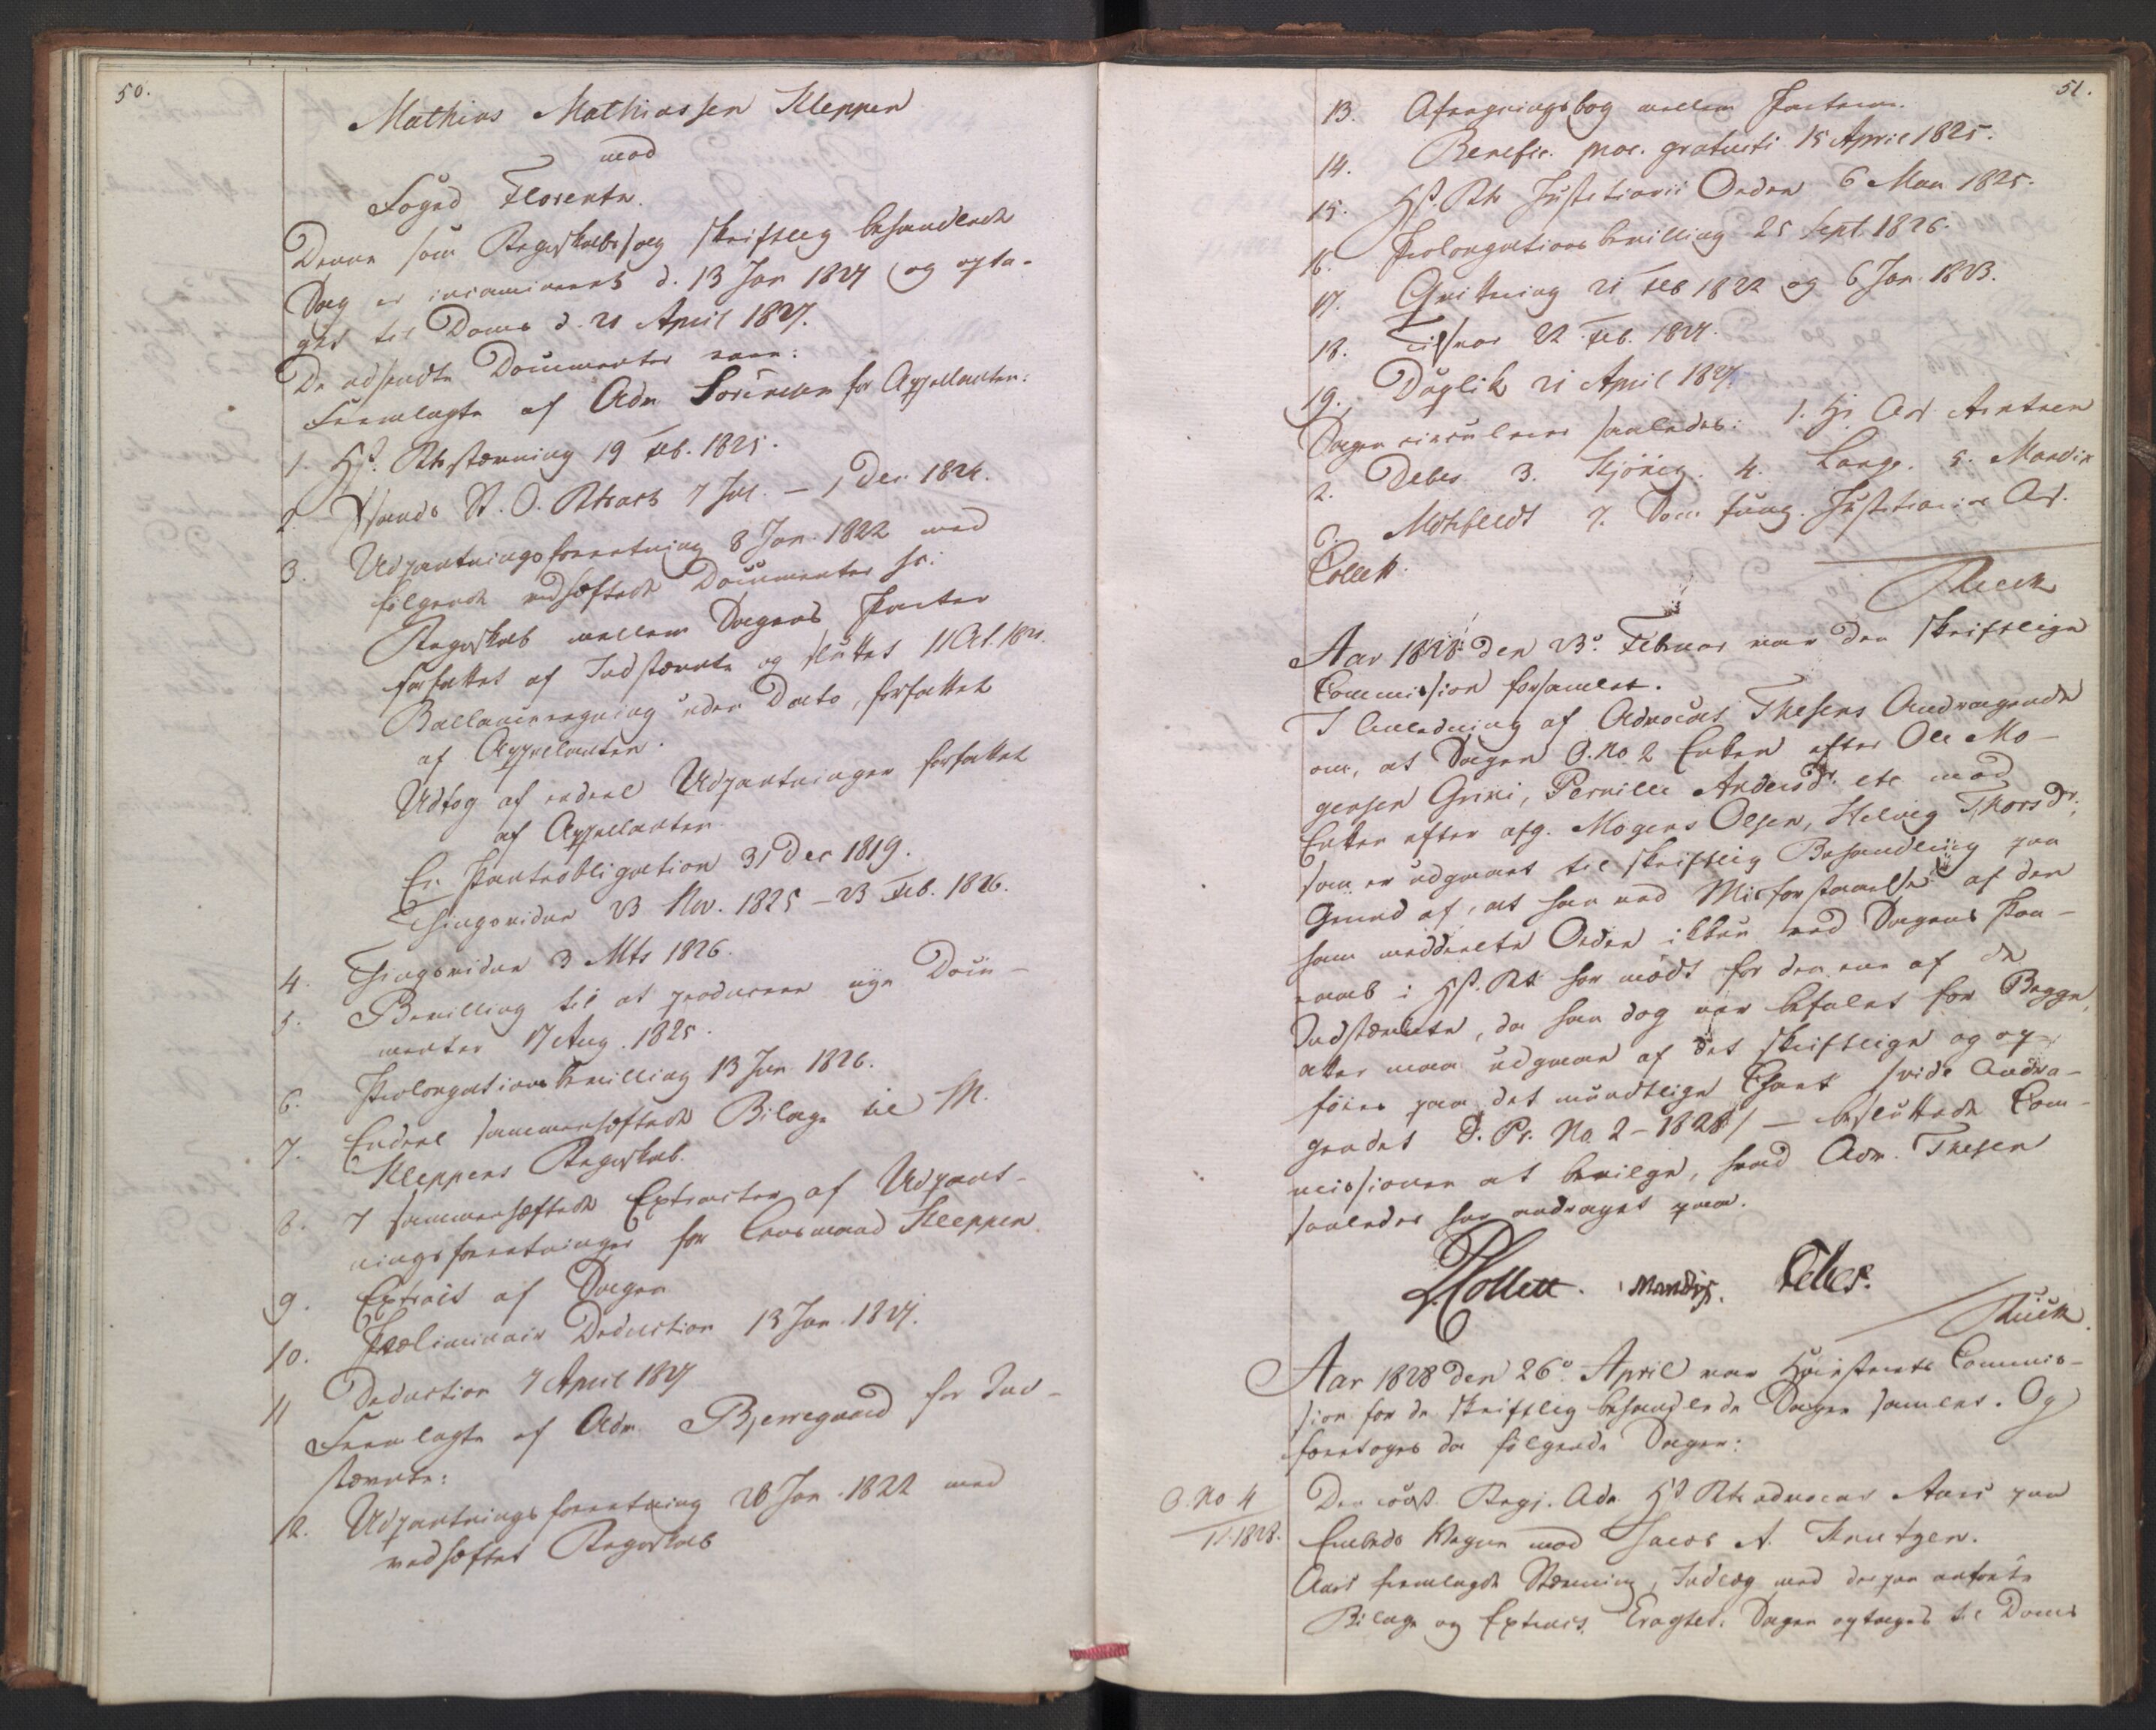 50.
Mathias Mathiassen Kleppen
mod
Foged Florentz.
Denne som Regnskabssag skriftlig behandlede
Sag er incamineret d. 13 Jan 1827 og opta-
get til Doms d. 21 April 1827.
De udsendte Documenter vare:
Fremlagte af Adv. Sörensen for Appellanten:
1. HstRtsstævning 19 Feb. 1825.
2. Xsands St. O. Rtsact 7 Jul. – 1 Dec. 1824.
3. Udpantningsforretning 8 Jan. 1822 med
følgende vedhæftede Documenter sc:
Regnskab mellem Sagens Parter
forfattet af Indstævnte og sluttet 11 Oct. 1821.
Ballanceregning uden Dato, forfattet
af Appellanten.
Udtog af endeel Udpantninger forfattet
af Appellanten.
En Panteobligation 31 Dec 1819.
Thingsvidne 23 Nov. 1825 – 23 Feb. 1826.
4. Thingsvidne 3 Mts 1826.
5. Bevilling til at producere nye Docu-
menter 17 Aug. 1825.
6. Prolongations Bevilling 13 Jan 1826.
7. Endeel sammenhæftede Bilage til M.
Kleppens Regnskab.
8. 7 sammenhæftede Extracter af Udpant-
ningsforretninger for Lensmand Kleppen.
9. Extract af Sagen
10. Præliminair Deduction 13 Jan. 1827.
11 Deduction 7 April 1827
Fremlagte af Adv. Bjerregaard for Ind-
stævnte:
12. Udpantningsforretning 28 Jan. 1822 med
vedhæftet Regnskab
51.
13. Afregningsbog mellem Parterne.
14. Benefic. proc. gratuiti 15 April 1825.
15. Hst. Rts Justitiarii Orden 6 Mai 1825.
16. Prolongations bevilling 25 Sept. 1826.
17. Qvittering 21 Feb 1822 og 6 Jan. 1823.
18. Tilsvar 22 Feb. 1827.
19. Duplik 21 April 1827.
Sagen circulerer saaledes: 1. Hr. Ass. Arntzen
2. Debes 3. Hjönig. 4. Lange. 5. Mandix
6. Motzfeldt 7. Som fung. Justitiarius Ass.
Collett.
Rieck
Aar 1828 den 23de Februar var den skriftlige
Commission forsamlet.
I Anledning af Advocat Thesens Andragende
om, at Sagen O. No 2 Enken efter Ole Mo-
gensen Grini, Pernille Andersdr. etc mod
Enken efter afg. Mogens Olsen, Helvig Thorsdr.,
som er udgaaet til skriftlig Behandling paa
Grund af, at han ved Misforstaaelse af den
ham meddeelte Orden ikkun ved Sagens Paa-
raab i Hst. Rt. har mödt for den ene af de
Indstævnte, da han dog var befalet for Begge,
atter maa udgaae af det skriftlige og op-
föres paa det mundtlige Chart (vide Andra-
gendet D. Pr. No. 2 – 1828) – besluttede Com-
missionen at bevilge, hvad Adv. Thesen
saaledes har andraget paa.
P Collett. Mandix. Debes.
Rieck.
Aar 1828 den 26de April var Höiesterets Commis-
sion for de skriftlig behandlede Sager samlet. Og
foretoges da følgende Sager:
O. No 4
11 1828.
Den const. Regj. Adv. Hst Rts advocat Aars paa
Embeds Vegne mod Jacob A. Knutzen.
Aars fremlagde Stævning, Indlæg med derpaa anförte
Bilage og Extract. Eragtet: Sagen optages til Doms